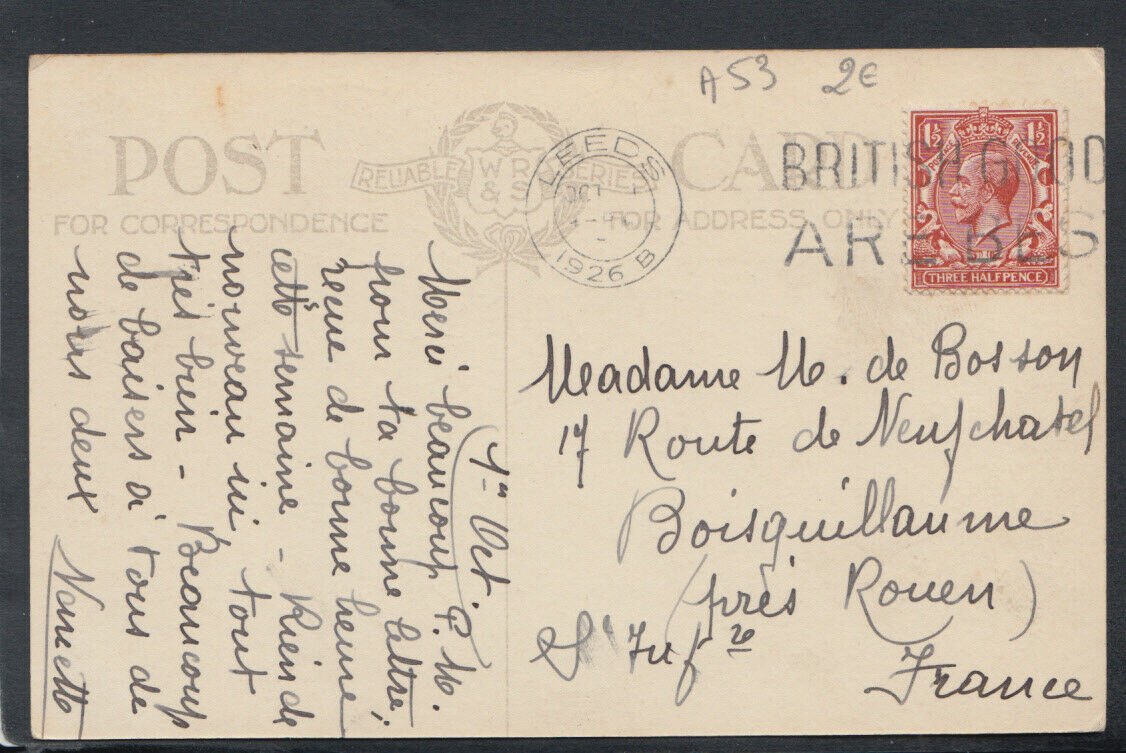 A53 2€
POST CARD
RELIABLE W.R. & S. SERIES
FOR CORRESPONDENCE
FOR ADDRESS ONLY
LEEDS
OCT
1926 B
BRITISH GOODS
ARE BEST
1½ 1½
POSTAGE REVENUE
THREE HALFPENCE
1er Oct.
Merci beaucoup P. M.
pour ta bonne lettre,
reçue de bonne heure
cette semaine - Rien de
nouveau ici, tout
très bien - Beaucoup
de baisers à tous de
nous deux
Madame M. de Bosson
17 Route de Neufchatel
Boisguillaume
(près Rouen)
Sne Infre
France